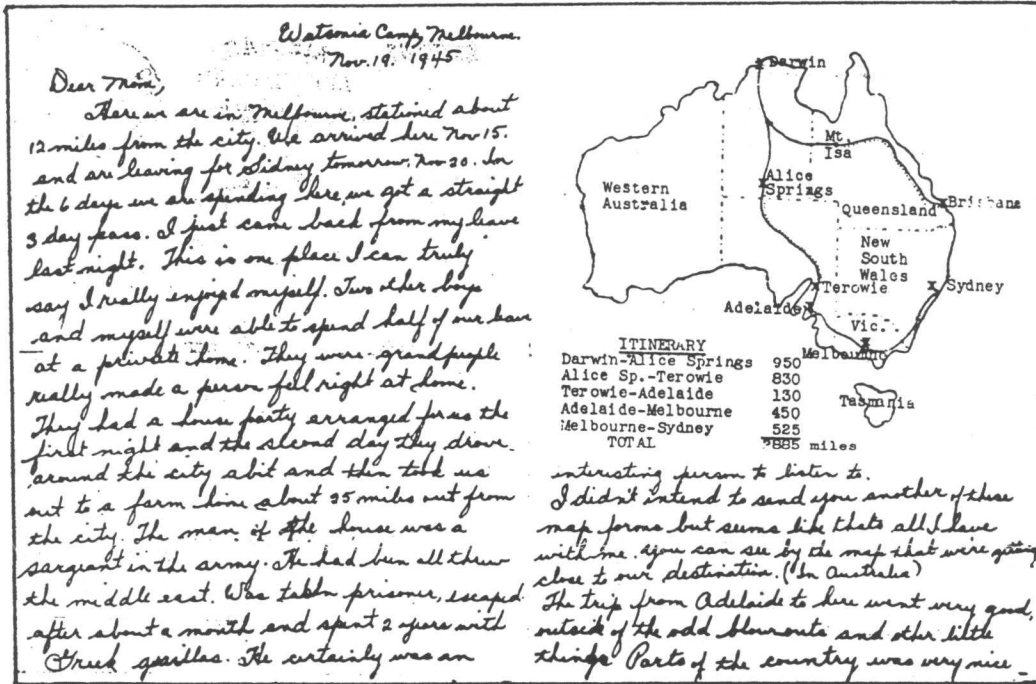 Watsonia Camp, Melbourne.
Nov. 19. 1945
Dear Mom,
Here we are in Melbourne, stationed about
12 miles from the city. We arrived here Nov 15.
and are leaving for Sidney tomorrow, Nov 20. In
the 6 days we are spending here, we got a straight
3 day pass. I just came back from my leave
last night. This is one place I can truly
say I really enjoyed myself. Two other boys
and myself were able to spend half of our leave
at a private home. They were grand people
really made a person feel right at home.
They had a house party arranged for us the
first night and the second day they drove
around the city abit and then took us
out to a farm home about 35 miles out from
the city. The man of the house was a
sargeant in the army. He had been all threw
the middle east. Was taken prisoner, escaped
after about a month and spent 2 years with
Greek guerillas. He certainly was an
Darwin
Mt.
Isa
Alice
Springs
Western
Australia
Queensland
Brisbane
New
South
Wales
Terowie
Sydney
Adelaide
Vic.
Melbourne
Tasmania
ITINERARY
Darwin-Alice Springs 950
Alice Sp.-Terowie 830
Terowie-Adelaide 130
Adelaide-Melbourne 450
Melbourne-Sydney 525
TOTAL 2885 miles
interesting person to listen to.
I didn't intend to send you another of these
map forms but seems like thats all I have
with me. you can see by the map that were getting
close to our destination. (In Australia)
The trip from Adelaide to here went very good,
outside of the odd blowouts and other little
things Parts of the country was very nice